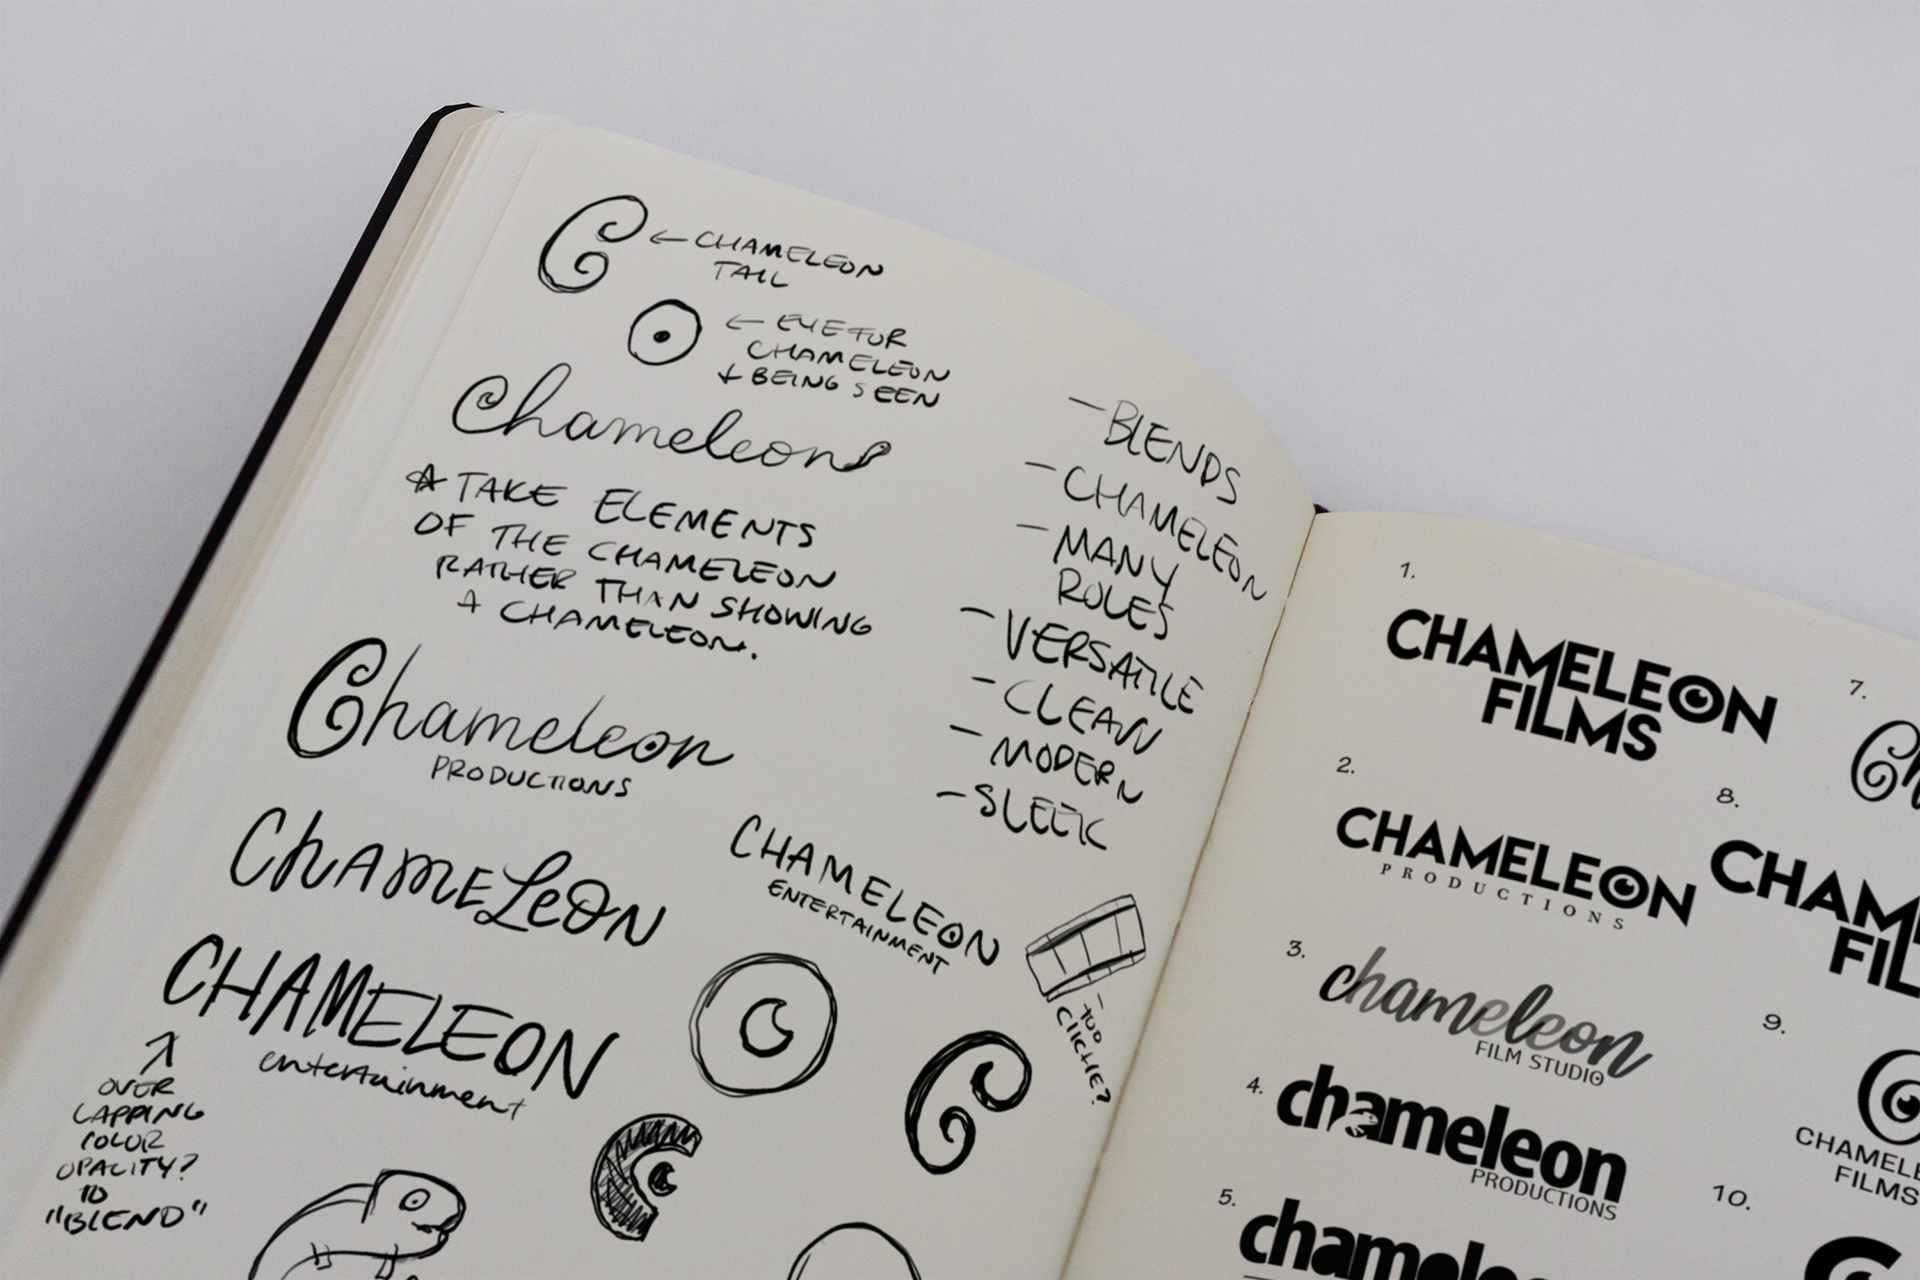 ← CHAMELEON
TAIL
← EYE FOR
CHAMELEON
+ BEING SEEN
Chameleon
TAKE ELEMENTS
OF THE CHAMELEON
RATHER THAN SHOWING
A CHAMELEON.
Chameleon
PRODUCTIONS
ChAmeLeON
CHAMELEON
ENTERTAINMENT
CHAMELEON
entertainment
OVER
LAPPING
COLOR
OPACITY?
TO
"BLEND"
- TOO
CLICHE?
C
- BLENDS
- CHAMELEON
- MANY
ROLES
- VERSATILE
- CLEAN
- MODERN
- SLEEK
1.
CHAMELEON
FILMS
2.
CHAMELEON
PRODUCTIONS
3.
chameleon
FILM STUDIO
4.
chameleon
PRODUCTIONS
5.
chameleo
7.
Ch
8.
CHAM
FIL
9.
CHAMELE
FILMS
10.